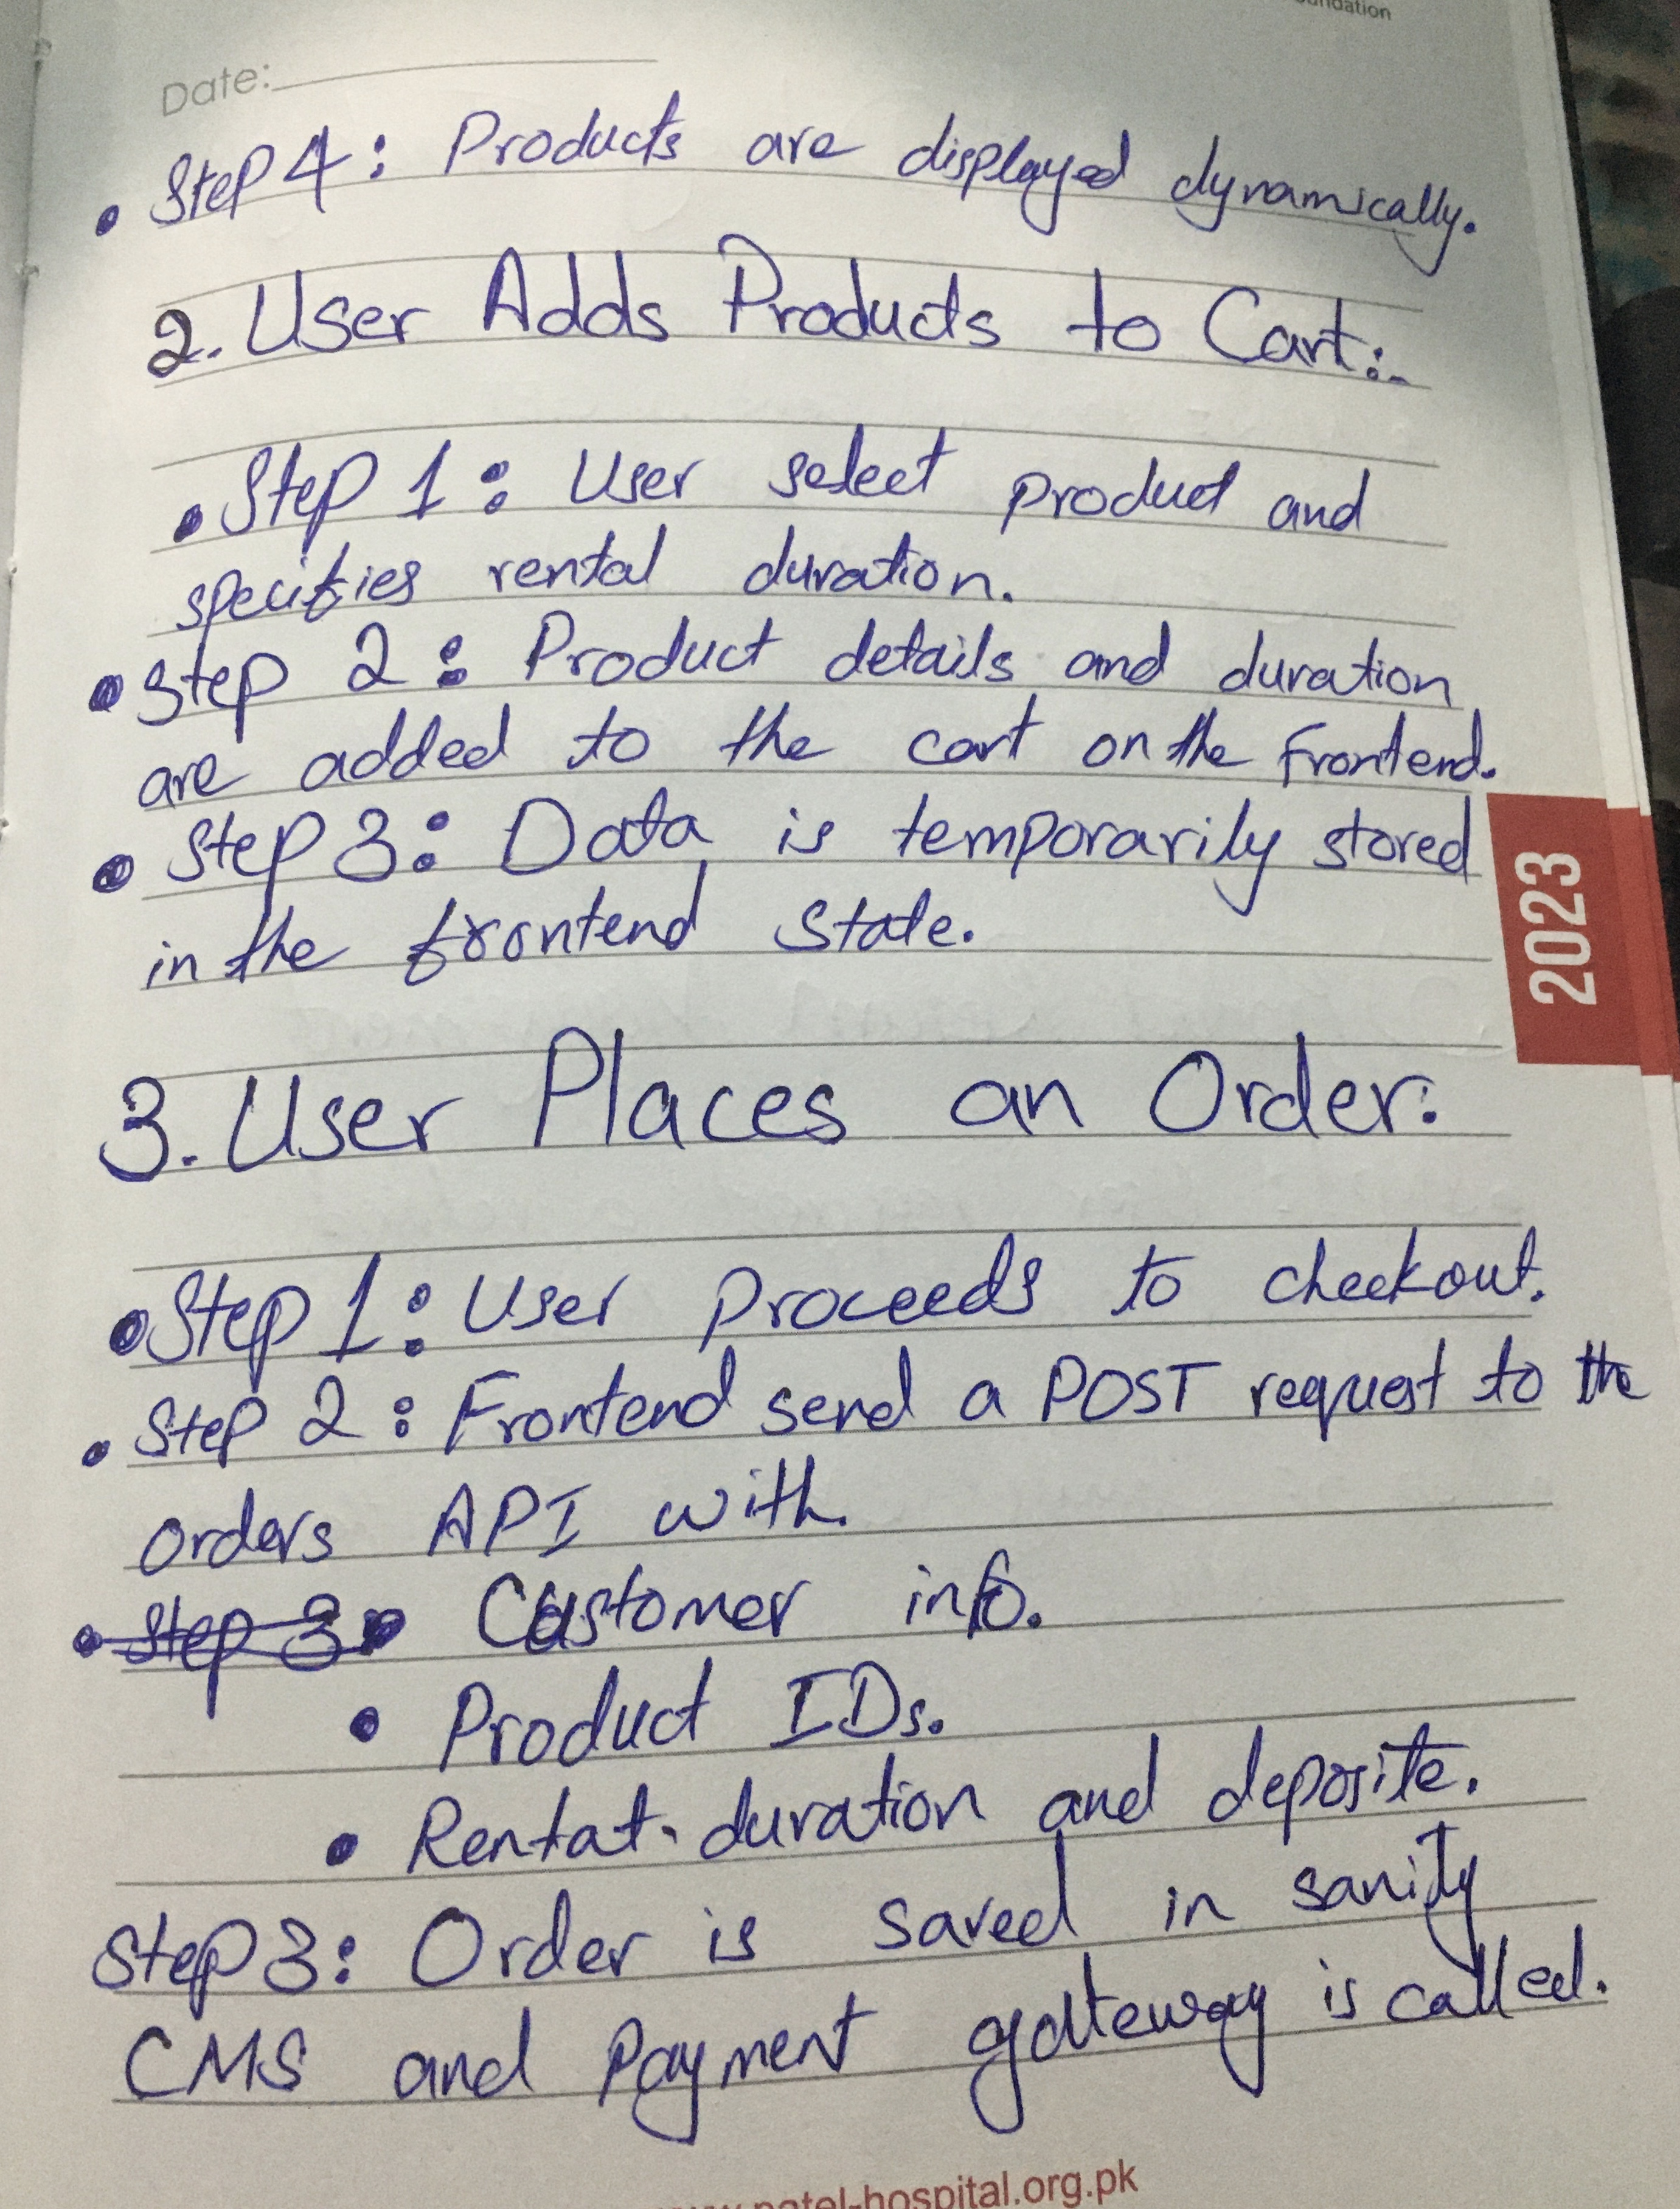 undation
Date:
• Step 4: Products are displayed dynamically.
2. User Adds Products to Cart:-
• Step 1: User select product and
specifies rental duration.
• Step 2: Product details and duration
are added to the cart on the frontend.
• Step 3: Data is temporarily stored
in the frontend state.
2023
3. User Places an Order:
• Step 1: User proceeds to checkout.
• Step 2: Frontend send a POST request to the
orders API with.
• Step 3 • Customer info.
• Product IDs.
• Rental duration and deposite.
Step 3: Order is saved in sanity
CMS and Payment gateway is called.
www.patel-hospital.org.pk